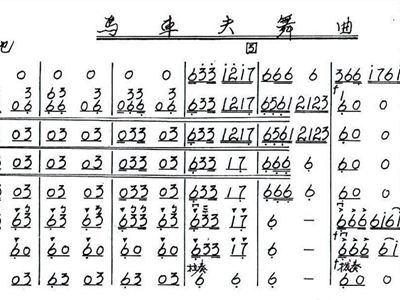 馬 車 夫 舞 曲
5
0 | 0 0 | 0 0 | 633 1217 | 666 6 | 366 1761
3 | 63 3 | 3 3
06 | 06 06 | 066 06 | 633 1217 | 6561 2123 | 60 0
03 | 03 03 | 033 03 | 633 1217 | 6561 2123 | 60 0
03 | 03 03 | 033 03 | 633 17 | 666 6 | 60 0
03 | 03 03 | 033 03 | 633 17 | 666 6 | 60 0
63 | 63 63 | 633 63 | 633 17 | 6 – | 666 6161
60 | 60 60 | 60 60 | 633 17 | 6 – | 666 61
03 | 03 03 | 033 03 | 6 6 | 6 6 | 60 0